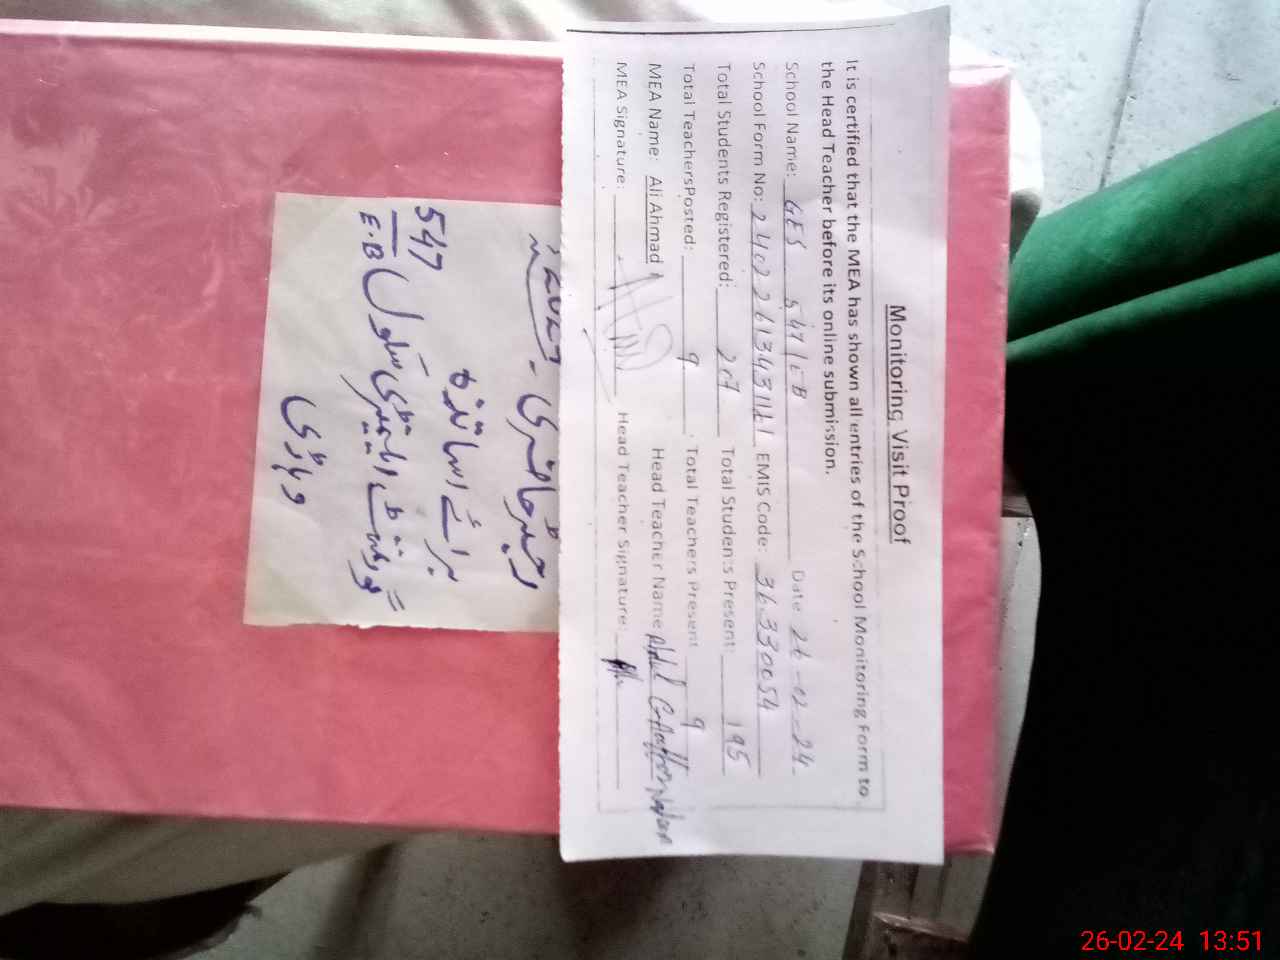 Monitoring Visit Proof
It is certified that the MEA has shown all entries of the School Monitoring Form to
the Head Teacher before its online submission.
School Name: GES 547/EB Date 26-02-24
School Form No: EMIS Code: 36330054
Total Students Registered: 207 Total Students Present: 195
Total TeachersPosted: 9 Total Teachers Present 9
MEA Name: Ali Ahmad Head Teacher Name Abdul
MEA Signature: Head Teacher Signature:
رجسٹر حاضری -
برائے اساتذہ
گورنمنٹ ایلیمنٹری سکول 547
E.B
وہاڑی
26-02-24 13:51